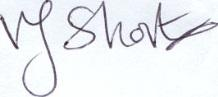 VJ Short